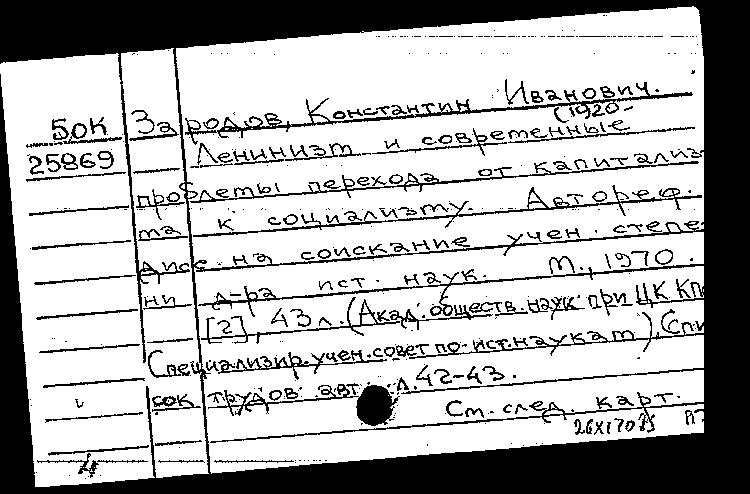 50К Зародов, Константин Иванович.
(1920-
25869 Ленинизм и современные
проблемы перехода от капитализ-
ма к социализму. Автореф.
дисс. на соискание учен. степе-
ни д-ра ист. наук. М., 1970.
[2], 43 л. (Акад. обществ. наук при ЦК КП
Специализир. учен. совет по ист. наукам). Спи
сок трудов авт. л. 42-43.
См. след. карт.
4